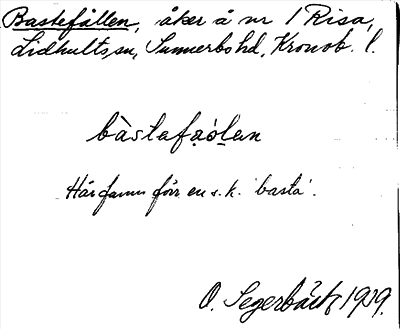 Bastefållen, åker å nr 1 Risa,
Lidhults sn, Sunnerbo hd, Kronob. l.
bàstafa̤ólan
Här fanns förr en s.k. 'basta'.
O. Segerbäck 1939.